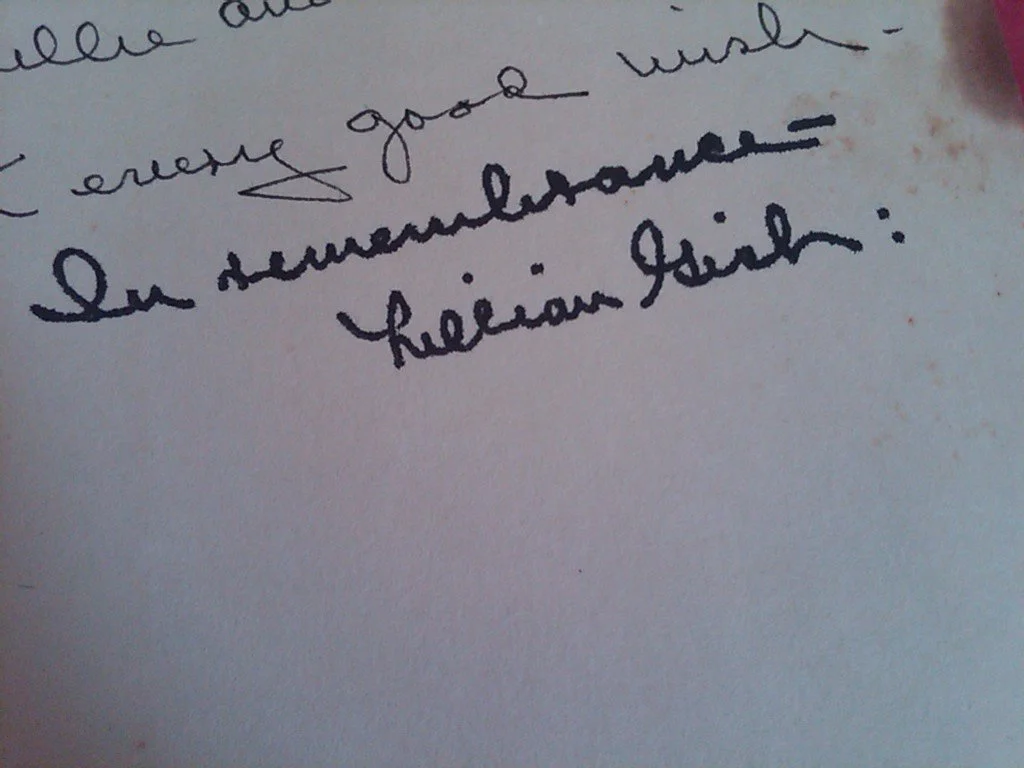 every good wish -
In remembrance =
Lillian Gish :